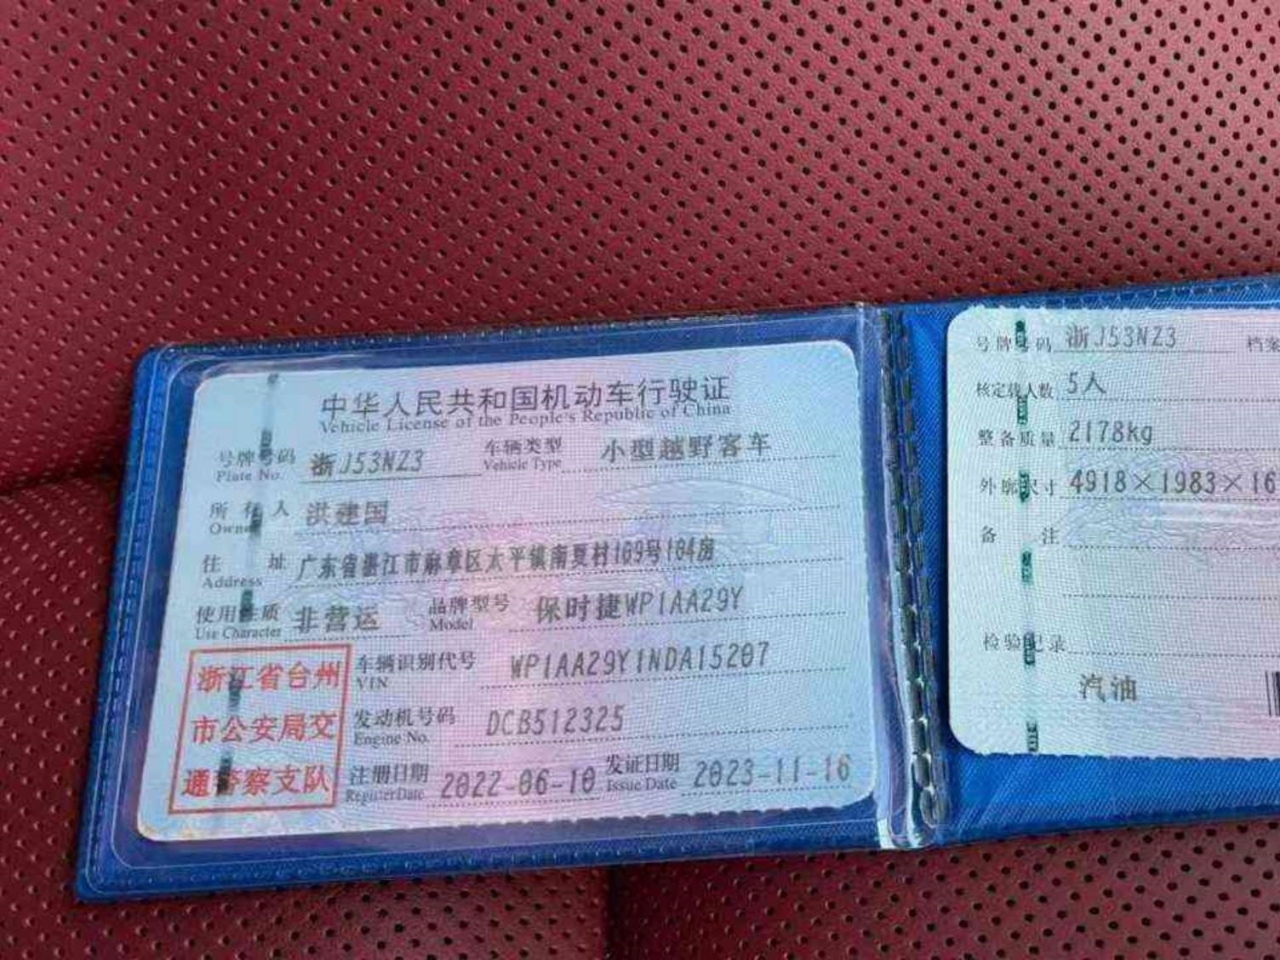 中华人民共和国机动车行驶证
Vehicle License of the People's Republic of China
号牌号码 浙J53NZ3 车辆类型 小型越野客车
Plate No. Vehicle Type
所有人 洪建国
Owner
住址 广东省湛江市麻章区太平镇南夏村109号104房
Address
使用性质 非营运 品牌型号 保时捷WP1AA29Y
Use Character Model
浙江省台州
市公安局交
通警察支队
车辆识别代号 WP1AA29Y1NDA15207
VIN
发动机号码 DCB512325
Engine No.
注册日期 2022-06-10 发证日期 2023-11-16
Register Date Issue Date
号牌号码 浙J53NZ3 档案
核定载人数 5人
整备质量 2178kg
外廓尺寸 4918×1983×16
备注
检验记录
汽油